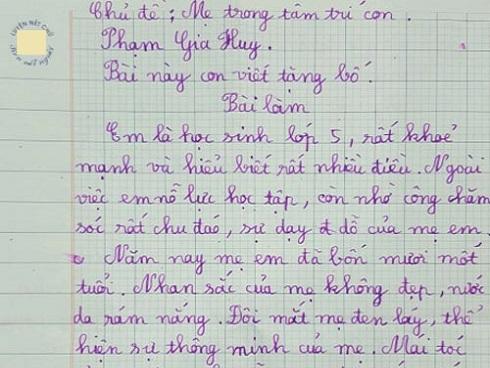 Chủ đề: Mẹ trong tâm trí con.
Phạm Gia Huy.
Bài này con viết tặng bố.
Bài làm
Em là học sinh lớp 5, rất khoẻ
mạnh và hiểu biết rất nhiều điều. Ngoài
việc em nỗ lực học tập, còn nhờ công chăm
sóc rất chu đáo, sự dạy dỗ của mẹ em.
Năm nay mẹ em đã bốn mươi một
tuổi. Nhan sắc của mẹ không đẹp, nước
da rám nắng. Đôi mắt mẹ đen láy, thể
hiện sự thông minh của mẹ. Mái tóc